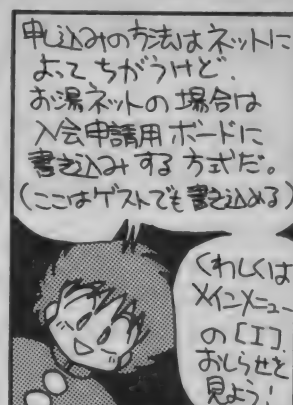 申し込みの方法はネットに
よってちがうけど、
お湯ネットの場合は
入会申請用ボードに
書き込みする方式だ。
(ここはゲストでも書き込める)
くわしくは
メインメニュー
の[I]
おしらせを
見よう!